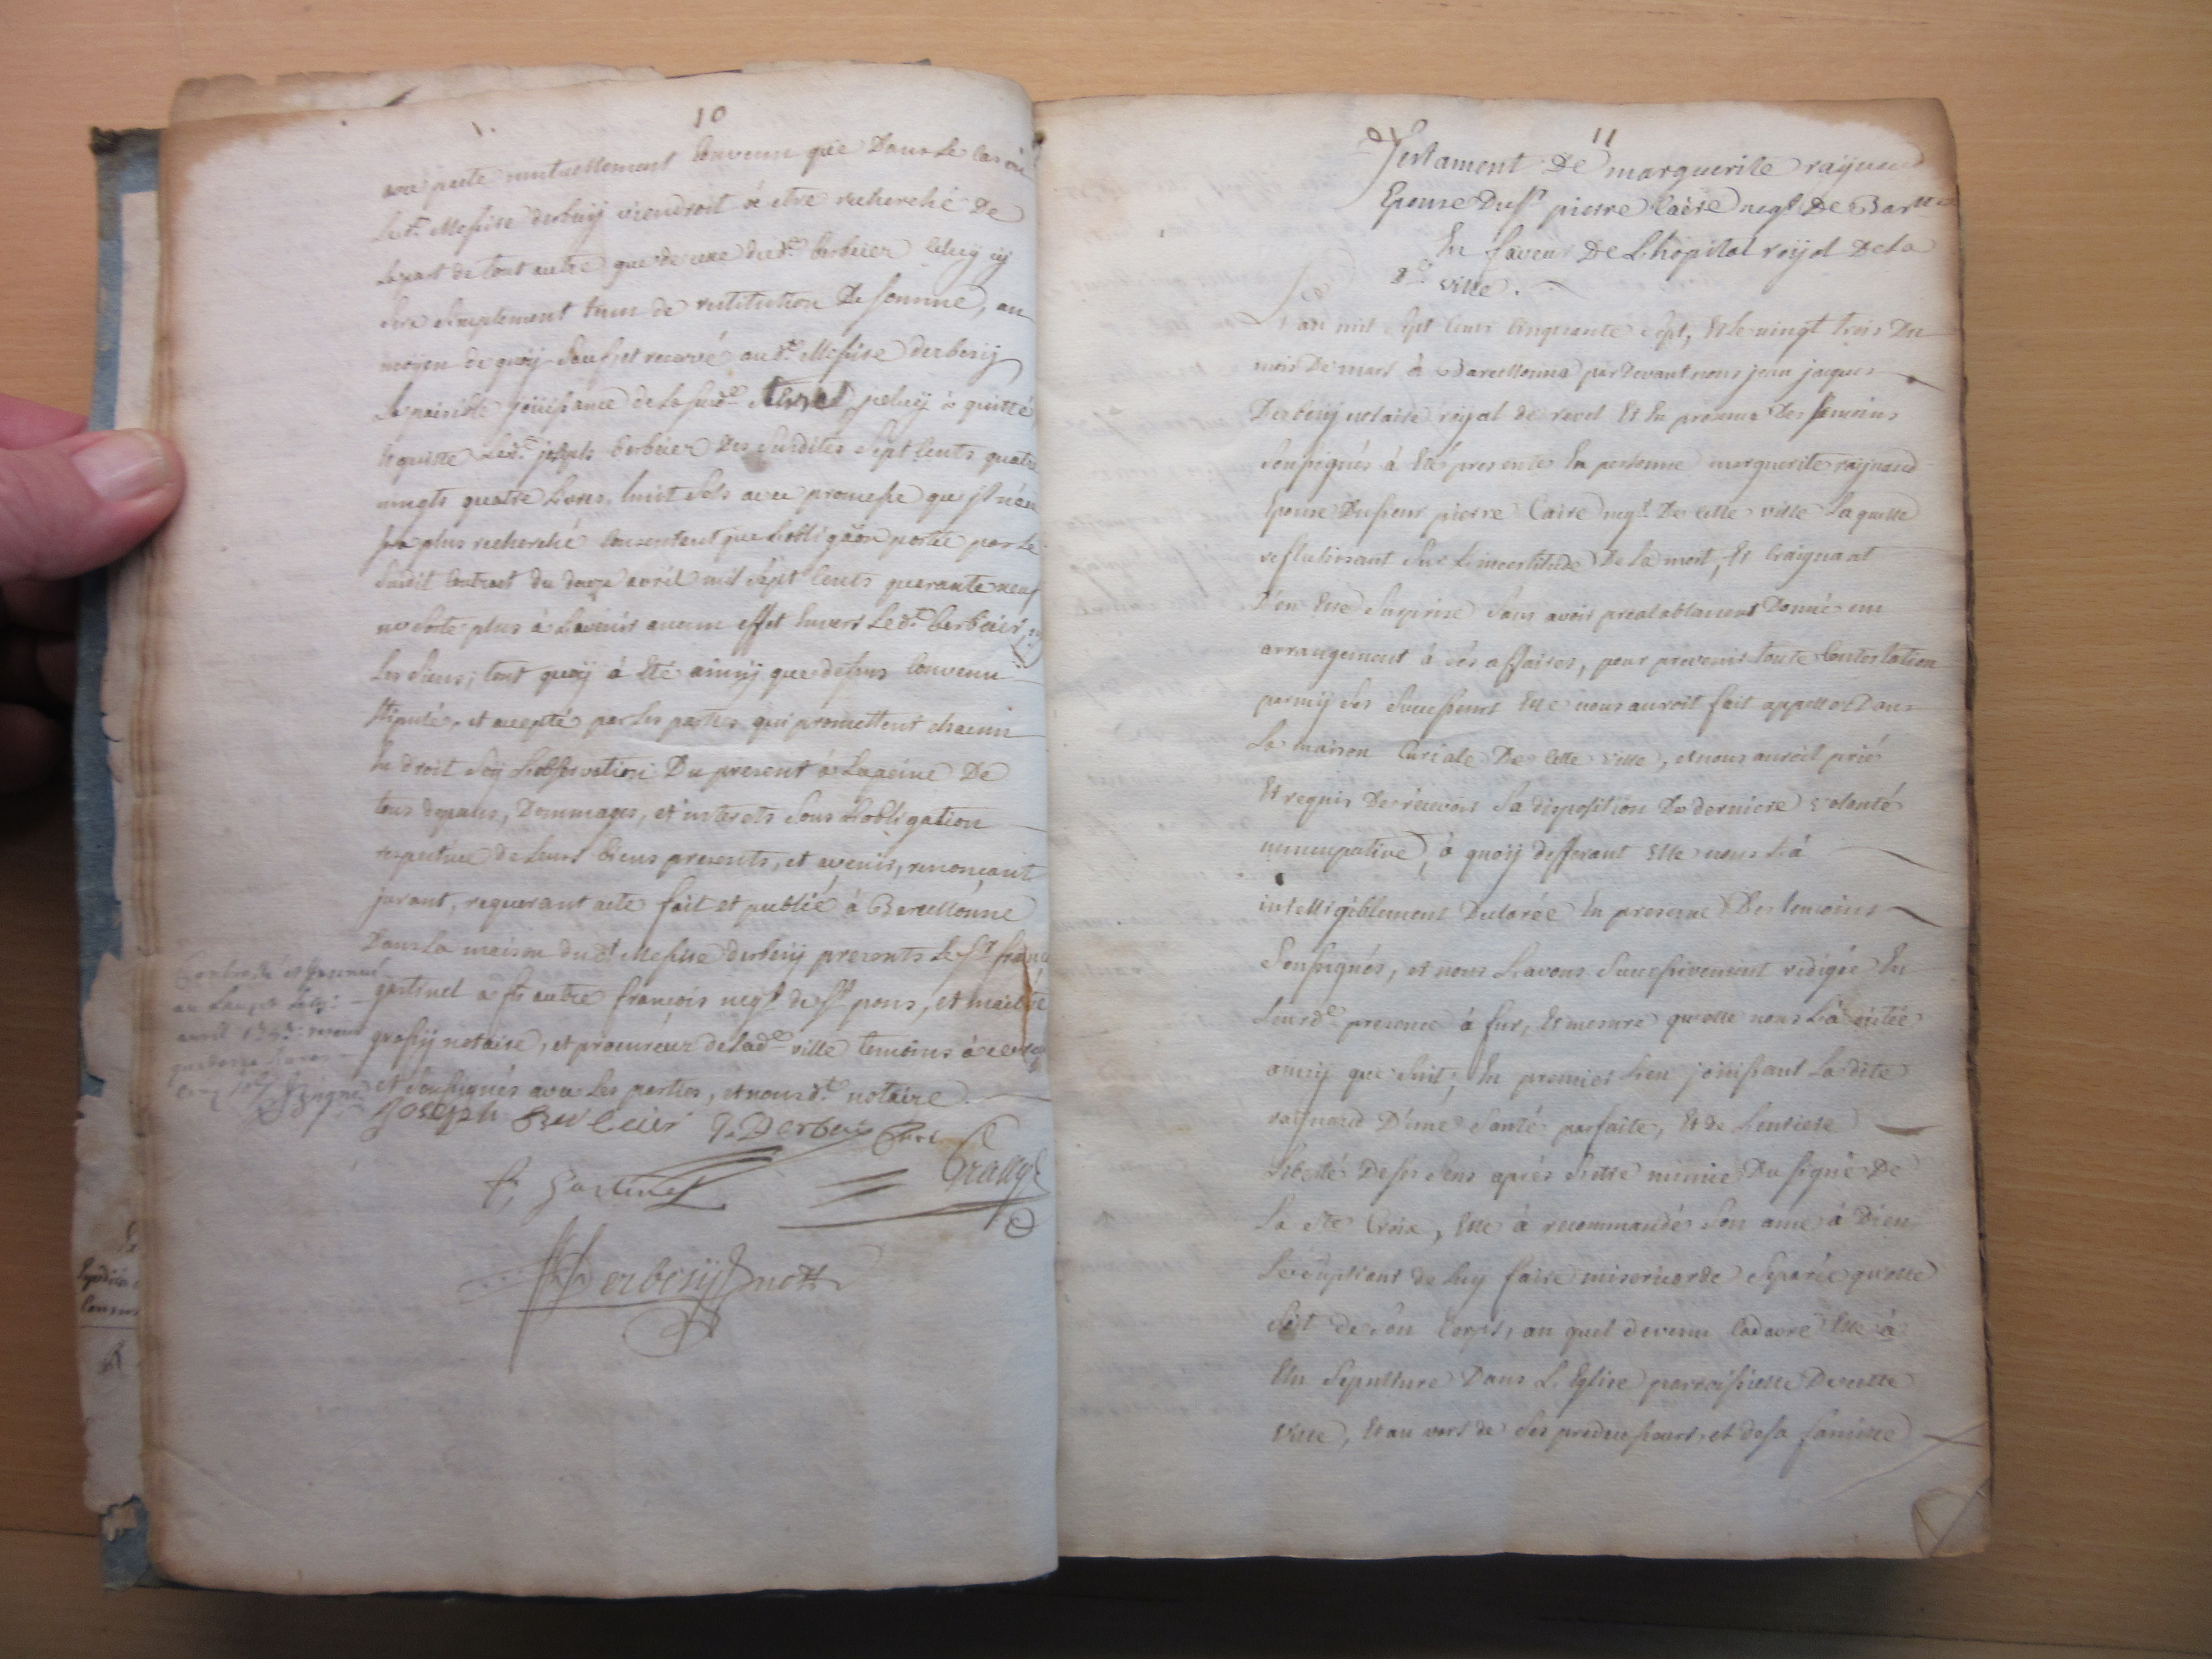 10
avec pacte mutuellement convenu que Dans Le Cas où
Led.t Messire derbesy viendroit à etre recherché De
La part de tout autre que de ceux dud.t berbeier celuy cy
sera simplement tenu de restitution De somme, au
moyen de quoy sauf, et reservé aud.t Messire derbesij
La paisible joüissance de La susd.e
Et quitte Led.t joseph berbeier Des susdites sept cents quatre
vingts quatre Livres, huit sols avec promesse qu'jl n'en
sera plus recherché consentent que L'obligãon portée par Le
susdit Contract du douze avril mil sept cents quarante neuf
ne sorte plus à L'avenir aucun effet Envers Led.t berbeier,
Les siens; tout quoy à Eté ainsij que dessus Convenu
stipulé, et accepté par Les parties qui promettent chacun
En droit soy L'observation Du present à La peine De
tous depans, Dommages, et interets sous L'obligation
respective de Leurs biens presents, et avenir, renonçant
jurant, requerant acte fait et publié à Barcellonne
Dans La maison dud.t Messire derbesij presents Le S.r
gastinel à feu autre françois neg.t de S.t pons, et
grassy notaire, et procureur de Lad.e ville temoins
et soussignés avec Les parties, et nous d.t notaire.
Joseph Berbeier Derbesy
f, gastinel Grassy
Derbesij not.re
11
Testament De marguerite raynaud
Epouse Du S.r pierre Caire neg.t De Bar.ne
En faveur De L'hopital royal De La
d.e ville.
L'an mil sept cents cinquante sept, Et Le vingt trois Du
mois De mars à Barcellonne par Devant nous jean jaques
Derbesij notaire royal de revel Et En presence Des temoins
soussignés à Eté presente En personne marguerite raynaud
Epouse Du sieur pierre Caire neg.t De cette ville Laquelle
reflechissant sur L'incertitude De La mort, Et Craignant
D'en Etre surprise sans avoir prealablement Donné un
arrangement à ses affaires, pour prevenir toute Contestation
parmy ses successeurs Elle nous auroit fait appeller Dans
La maison Curiale De cette ville, et nous auroit prié
Et requis De recevoir sa disposition De derniere volonté
nuncupative, à quoy defferant Elle nous L'à
intelligiblement Declarée En presence Des temoins
soussignés, et nous L'avons successivement redigée En
Leurd.e presence à fur, Et mesure qu'elle nous L'à dictée
ainsij que suit; En premier Lieu joüissant Ladite
raynaud D'une santé parfaite, Et de L'entiere
Liberté De ses sens après s'etre munie Du signe De
La ste Croix, Elle à recommandé son ame à Dieu
Le supliant de Luy faire misericorde separée qu'elle
soit de son Corps, au quel devenu Cadavre Elle à
Elu sepulture Dans L'Eglise parroissielle De cette
ville, Et au vars de ses predecesseurs, et de sa famille